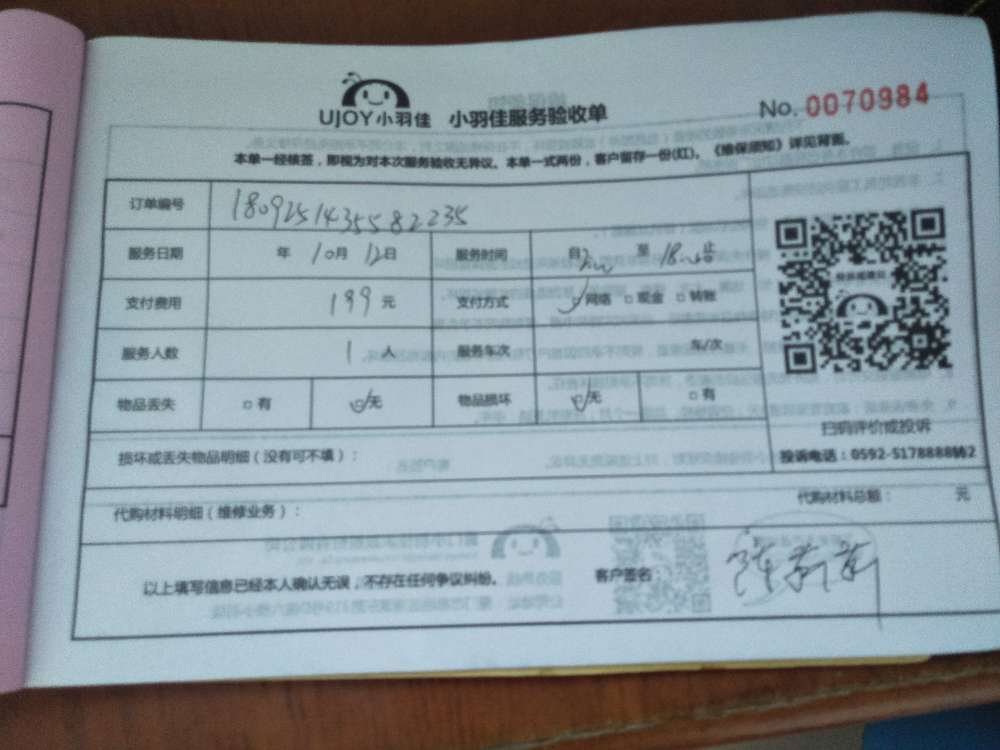 UJOY小羽佳 小羽佳服务验收单 No. 0070984
本单一经核签，即视为对本次服务验收无异议。本单一式两份，客户留存一份(红)。《维保须知》详见背面。
订单编号 1809251435582235
服务日期 年 10月 12日 服务时间 自 至 18 止
支付费用 199 元 支付方式 网络 现金 转账
服务人数 1 人 服务车次 车/次
物品丢失 有 无 物品损坏 无 有
扫码评价或投诉
损坏或丢失物品明细（没有可不填）： 投诉电话：0592-5178888转2
代购材料明细（维修业务）： 代购材料总额： 元
以上填写信息已经本人确认无误，不存在任何争议纠纷。 客户签名